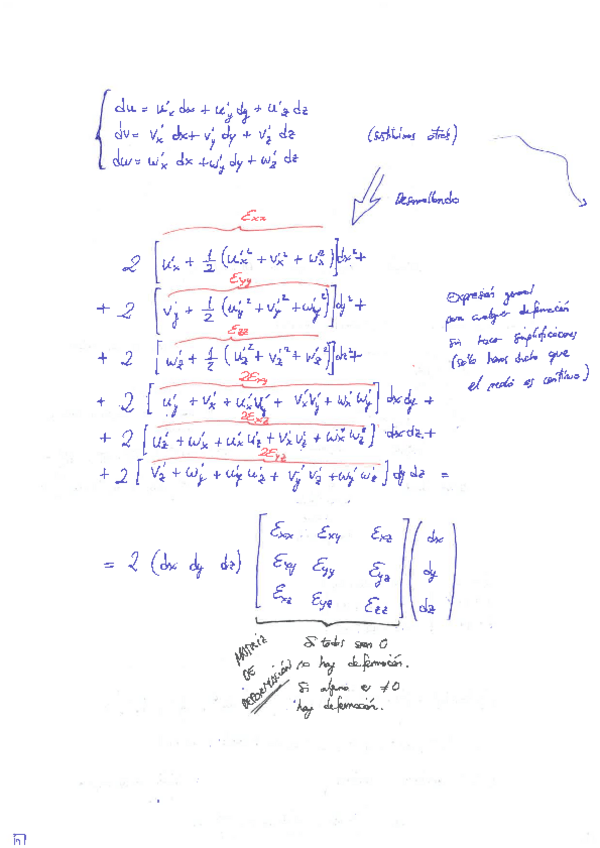 du = u'x dx + u'y dy + u'z dz
dv = v'x dx + v'y dy + v'z dz
dw = w'x dx + w'y dy + w'z dz
(sustituimos otras)
Desarrollando
Exx
2 [u'x + 1/2 (u'x² + v'x² + w'x²)] dx² +
Eyy
+ 2 [v'y + 1/2 (u'y² + v'y² + w'y²)] dy² +
Ezz
+ 2 [w'z + 1/2 (u'z² + v'z² + w'z²)] dz² +
2Exy
+ 2 [u'y + v'x + u'x u'y + v'x v'y + w'x w'y] dx dy +
2Exz
+ 2 [u'z + w'x + u'x u'z + v'x v'z + w'x w'z] dx dz +
2Eyz
+ 2 [v'z + w'y + u'y u'z + v'y v'z + w'y w'z] dy dz =
Expresión general
para cualquier deformación
sin hacer simplificaciones
(sólo hemos dicho que
el medio es continuo)
= 2 (dx dy dz)
Exx Exy Exz
Exy Eyy Eyz
Exz Eyz Ezz
dx
dy
dz
MATRIZ
DE
DEFORMACIÓN
Si todos son 0
no hay deformación.
Si alguno es ≠0
hay deformación.